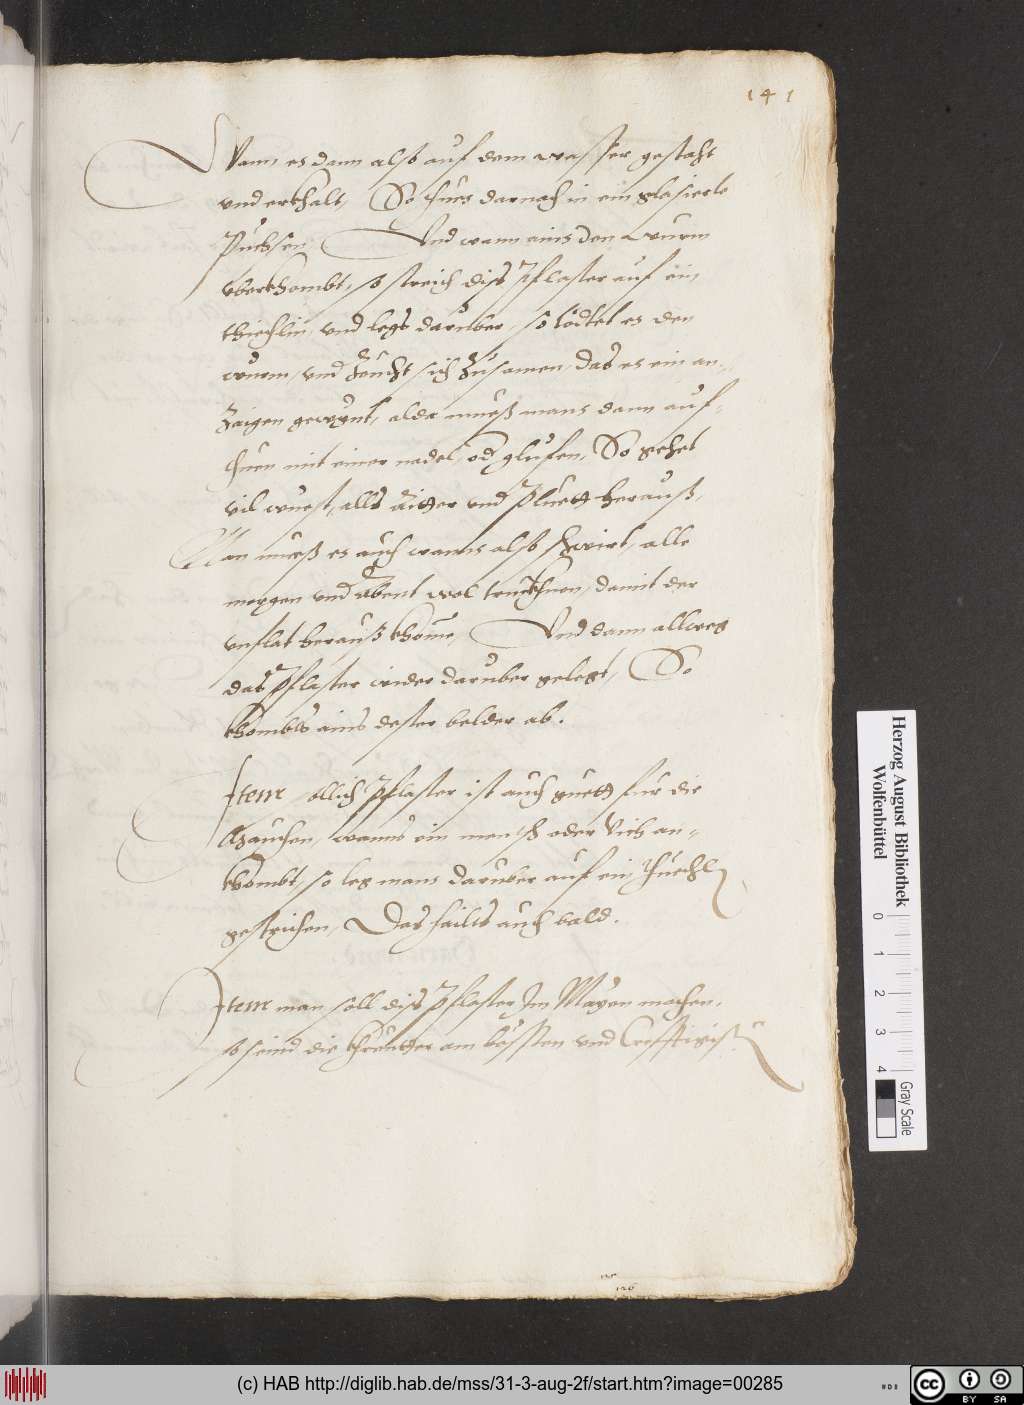 141
Wann es dann also auf dem wasser gesteht
vnd erkhalt, So thues darnach in ein glasierte
Püchsen, Vnd wann ains den wurm
vberkhombt, so streich diß Pflaster auf ein
thiechlin, vnd legs darüber, so tödtet es den
wurm, vnd Zeucht sich Zusamen, das es ein an-
Zaigen gewynt, alda mueß mans dann auf-
thuen mit einer nadel, od glufen, So gehet
vil wuest, alls Aitter vnd Pluett herauß,
Man mueß es auch wanns also schwirt, alle
morgen vnd abent wol truckhnen, damit der
vnflat herauß khome, Vnd dann allweg
das Pflaster wider darüber gelegt, So
khombts ains dester belder ab.
Item, pflaster ist auch guett für die
wanns ein mensch oder Vich an-
khombt, so leg mans darüber auf ein thuechl
gestrichen, Das hailts auch bald.
Item man soll diß Pflaster Im Mayen machen,
so seind die khreutter am bössten vnd Crefftigist
126
Herzog August Bibliothek
Wolfenbüttel
0 1 2 3 4
Gray Scale
(c) HAB http://diglib.hab.de/mss/31-3-aug-2f/start.htm?image=00285
cc BY SA